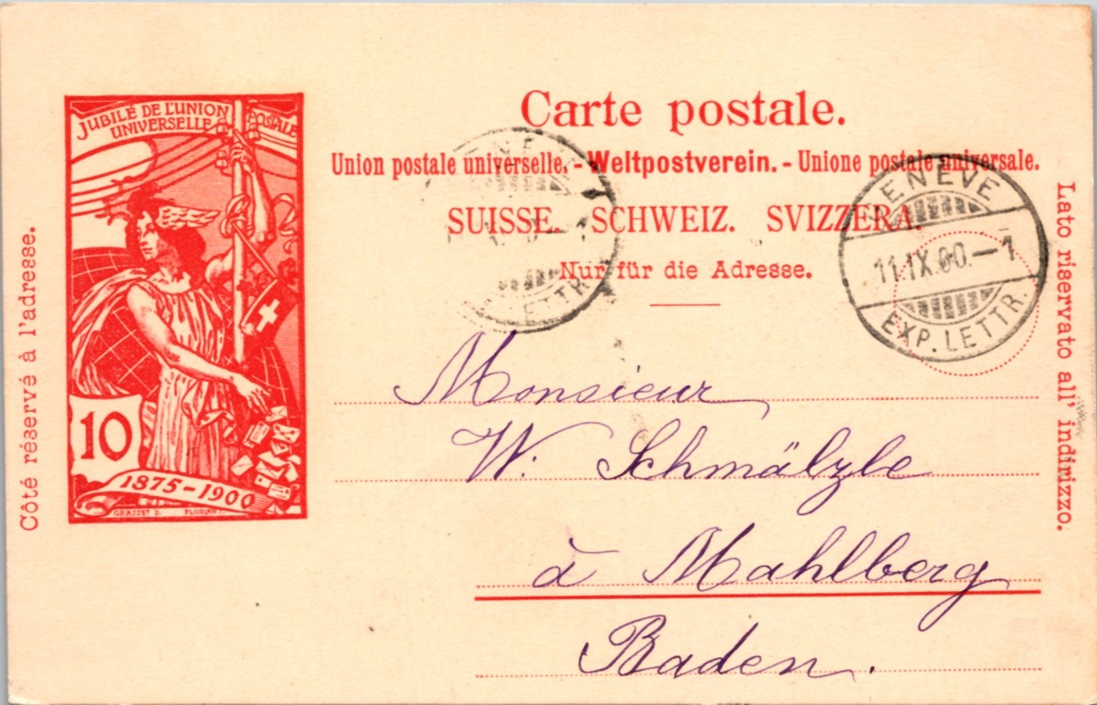 JUBILÉ DE L'UNION
POSTALE
UNIVERSELLE
10
1875-1900
GRASSET D.
Côté réservé à l'adresse.
Carte postale.
Union postale universelle. - Weltpostverein. - Unione postale universale.
SUISSE. SCHWEIZ. SVIZZERA.
Nur für die Adresse.
GENÈVE
11.IX.00.-1
EXP. LETTR.
LETTR.
Monsieur
W. Schmälzle
à Mahlberg
Baden.
Lato riservato all' indirizzo.